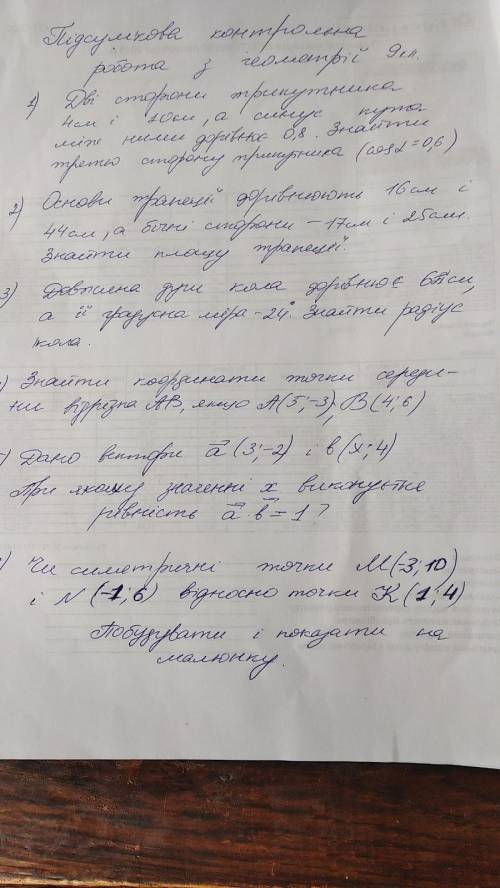 Підсумкова контрольна
робота з геометрії 9 кл.
1) Дві сторони трикутника
4см і 10см, а синус кута
між ними дорівнює 0,8. Знайти
третю сторону трикутника (cosα=0,6)
2) Основи трапеції дорівнюють 16см і
44см, а бічні сторони – 17см і 25см.
Знайти площу трапеції.
3) Довжина дуги кола дорівнює 6πсм,
а її градусна міра – 24°. Знайти радіус
кола.
) Знайти координати точки середи-
ни відрізка AB, якщо A(5;-3), B(4;6)
) Дано вектори a (3;-2) і b (x;4)
При якому значенні x виконується
рівність a·b=1?
) Чи симетричні точки M(-3;10)
і N (-1;6) відносно точки K(1;4)
Побудувати і показати на
малюнку.